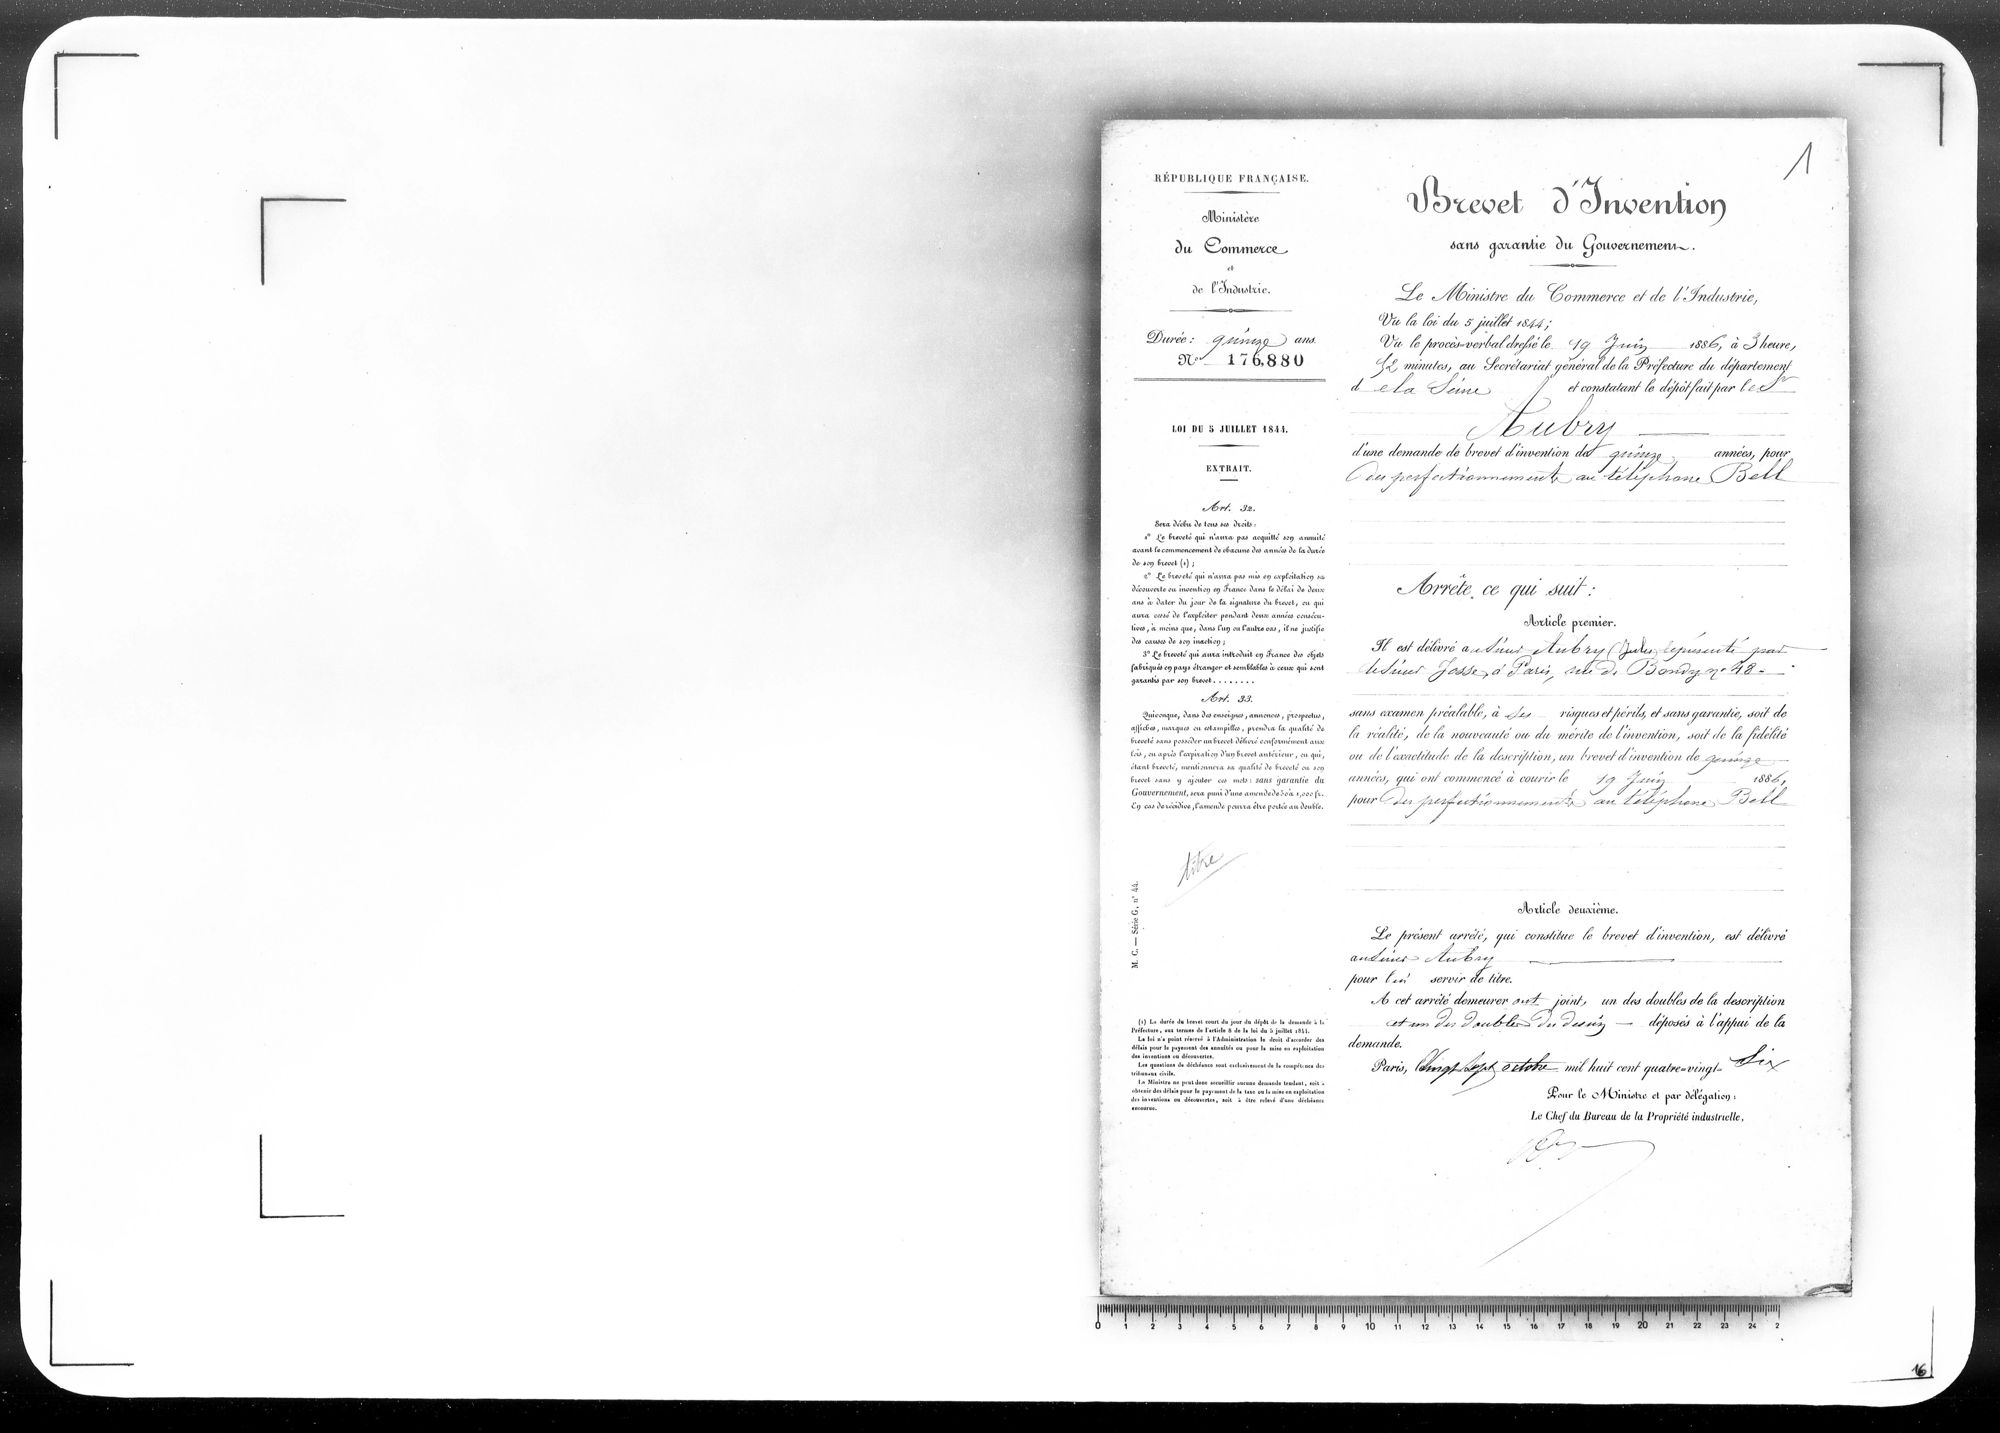 1
RÉPUBLIQUE FRANÇAISE.
Ministère
du Commerce
et
de l'Industrie.
Durée : quinze ans
N° 176,880
LOI DU 5 JUILLET 1844.
EXTRAIT.
Art. 32.
Sera déchu de tous ses droits :
1° Le breveté qui n'aura pas acquitté son annuité
avant le commencement de chacune des années de la durée
de son brevet (1) ;
2° Le breveté qui n'aura pas mis en exploitation sa
découverte ou invention en France dans le délai de deux
ans à dater du jour de la signature du brevet, ou qui
aura cessé de l'exploiter pendant deux années consécu-
tives, à moins que, dans l'un ou l'autre cas, il ne justifie
des causes de son inaction ;
3° Le breveté qui aura introduit en France des objets
fabriqués en pays étranger et semblables à ceux qui sont
garantis par son brevet........
Art. 33.
Quiconque, dans des enseignes, annonces, prospectus,
affiches, marques ou estampilles, prendra la qualité de
breveté sans posséder un brevet délivré conformément aux
lois, ou après l'expiration d'un brevet antérieur, ou qui,
étant breveté, mentionnera sa qualité de breveté ou son
brevet sans y ajouter ces mots : sans garantie du
Gouvernement, sera puni d'une amende de 50 à 1,000 fr.
En cas de récidive, l'amende pourra être portée au double.
titre
M. C. — Série G, n° 44.
(1) La durée du brevet court du jour du dépôt de la demande à la
Préfecture, aux termes de l'article 8 de la loi du 5 juillet 1844.
La loi n'a point réservé à l'Administration le droit d'accorder des
délais pour le payement des annuités ou pour la mise en exploitation
des inventions ou découvertes.
Les questions de déchéance sont exclusivement de la compétence des
tribunaux civils.
Le Ministre ne peut donc accueillir aucune demande tendant, soit à
obtenir des délais pour le payement de la taxe ou la mise en exploitation
des inventions ou découvertes, soit à être relevé d'une déchéance
encourue.
Brevet d'Invention
sans garantie du Gouvernement.
Le Ministre du Commerce et de l'Industrie,
Vu la loi du 5 juillet 1844 ;
Vu le procès-verbal dressé le 19 Juin 1886, à 3 heure,
52 minutes, au Secrétariat général de la Préfecture du département
de la Seine et constatant le dépôt fait par le Sr
Aubry
d'une demande de brevet d'invention de quinze années, pour
des perfectionnements au téléphone Bell
Arrête ce qui suit :
Article premier.
Il est délivré au Sieur Aubry (Jules) représenté par
le Sieur Josse, à Paris, rue de Bondy n° 48
sans examen préalable, à ses risques et périls, et sans garantie, soit de
la réalité, de la nouveauté ou du mérite de l'invention, soit de la fidélité
ou de l'exactitude de la description, un brevet d'invention de quinze
années, qui ont commencé à courir le 19 Juin 1886,
pour des perfectionnements au téléphone Bell
Article deuxième.
Le présent arrêté, qui constitue le brevet d'invention, est délivré
au Sieur Aubry
pour lui servir de titre.
A cet arrêté demeurer ont joint, un des doubles de la description
et un des doubles du dessin — déposés à l'appui de la
demande.
Paris, le vingt sept octobre mil huit cent quatre-vingt- Six
Pour le Ministre et par délégation :
Le Chef du Bureau de la Propriété industrielle,
0 1 2 3 4 5 6 7 8 9 10 11 12 13 14 15 16 17 18 19 20 21 22 23 24 2
16